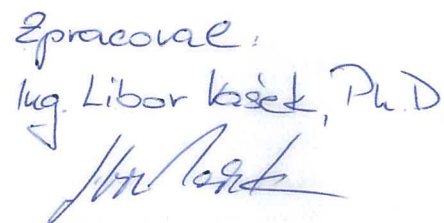 Zpracoval:
Ing. Libor Vašek, Ph.D